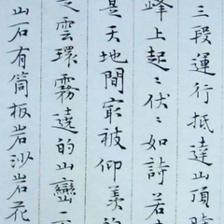 三段運行抵達山頂
峰上起〻伏〻如詩若
是天地間最被仰羨
雲環霧遶的山巒
山石有筒板岩沙岩花